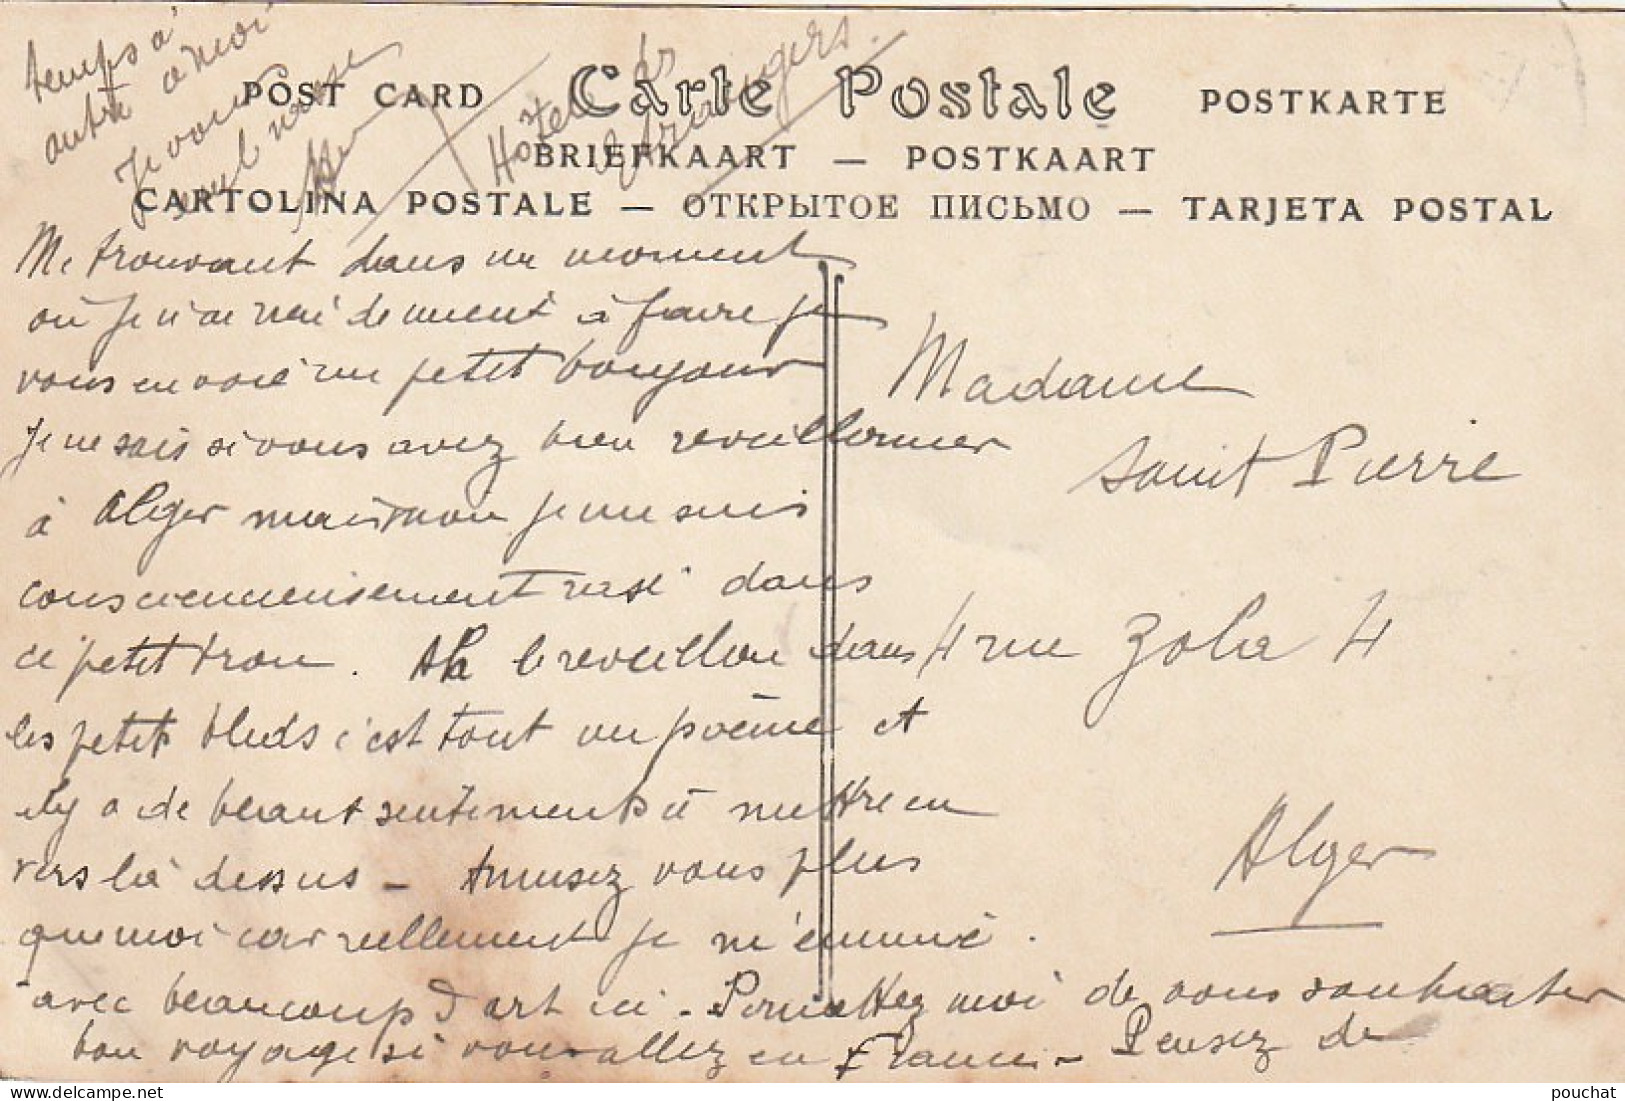 temps à
autre à moi
Je vous
Hotel des
Etrangers.
POST CARD Carte Postale POSTKARTE
BRIEFKAART — POSTKAART
CARTOLINA POSTALE — ОТКРЫТОЕ ПИСЬМО — TARJETA POSTAL
Me trouvant dans un moment
où je n'ai rien de muent à faire je
vous envoie un petit bonjour
Je ne sais si vous avez bien reveillonner
à Alger mais moi je me suis
consciencieusement rasé dans
ce petit trou. Ah le reveillon dans
les petits bleds c'est tout un poème et
il y a de beaux sentiments à mettre en
vers là dessus - Amusez vous plus
que moi car réellement je m'ennuie.
avec beaucoup d'art ici - Permettez moi de vous souhaiter
bon voyage si vous allez en France - Pensez de
Madame
Saint Pierre
4 rue Zola 4
Alger
pouchat